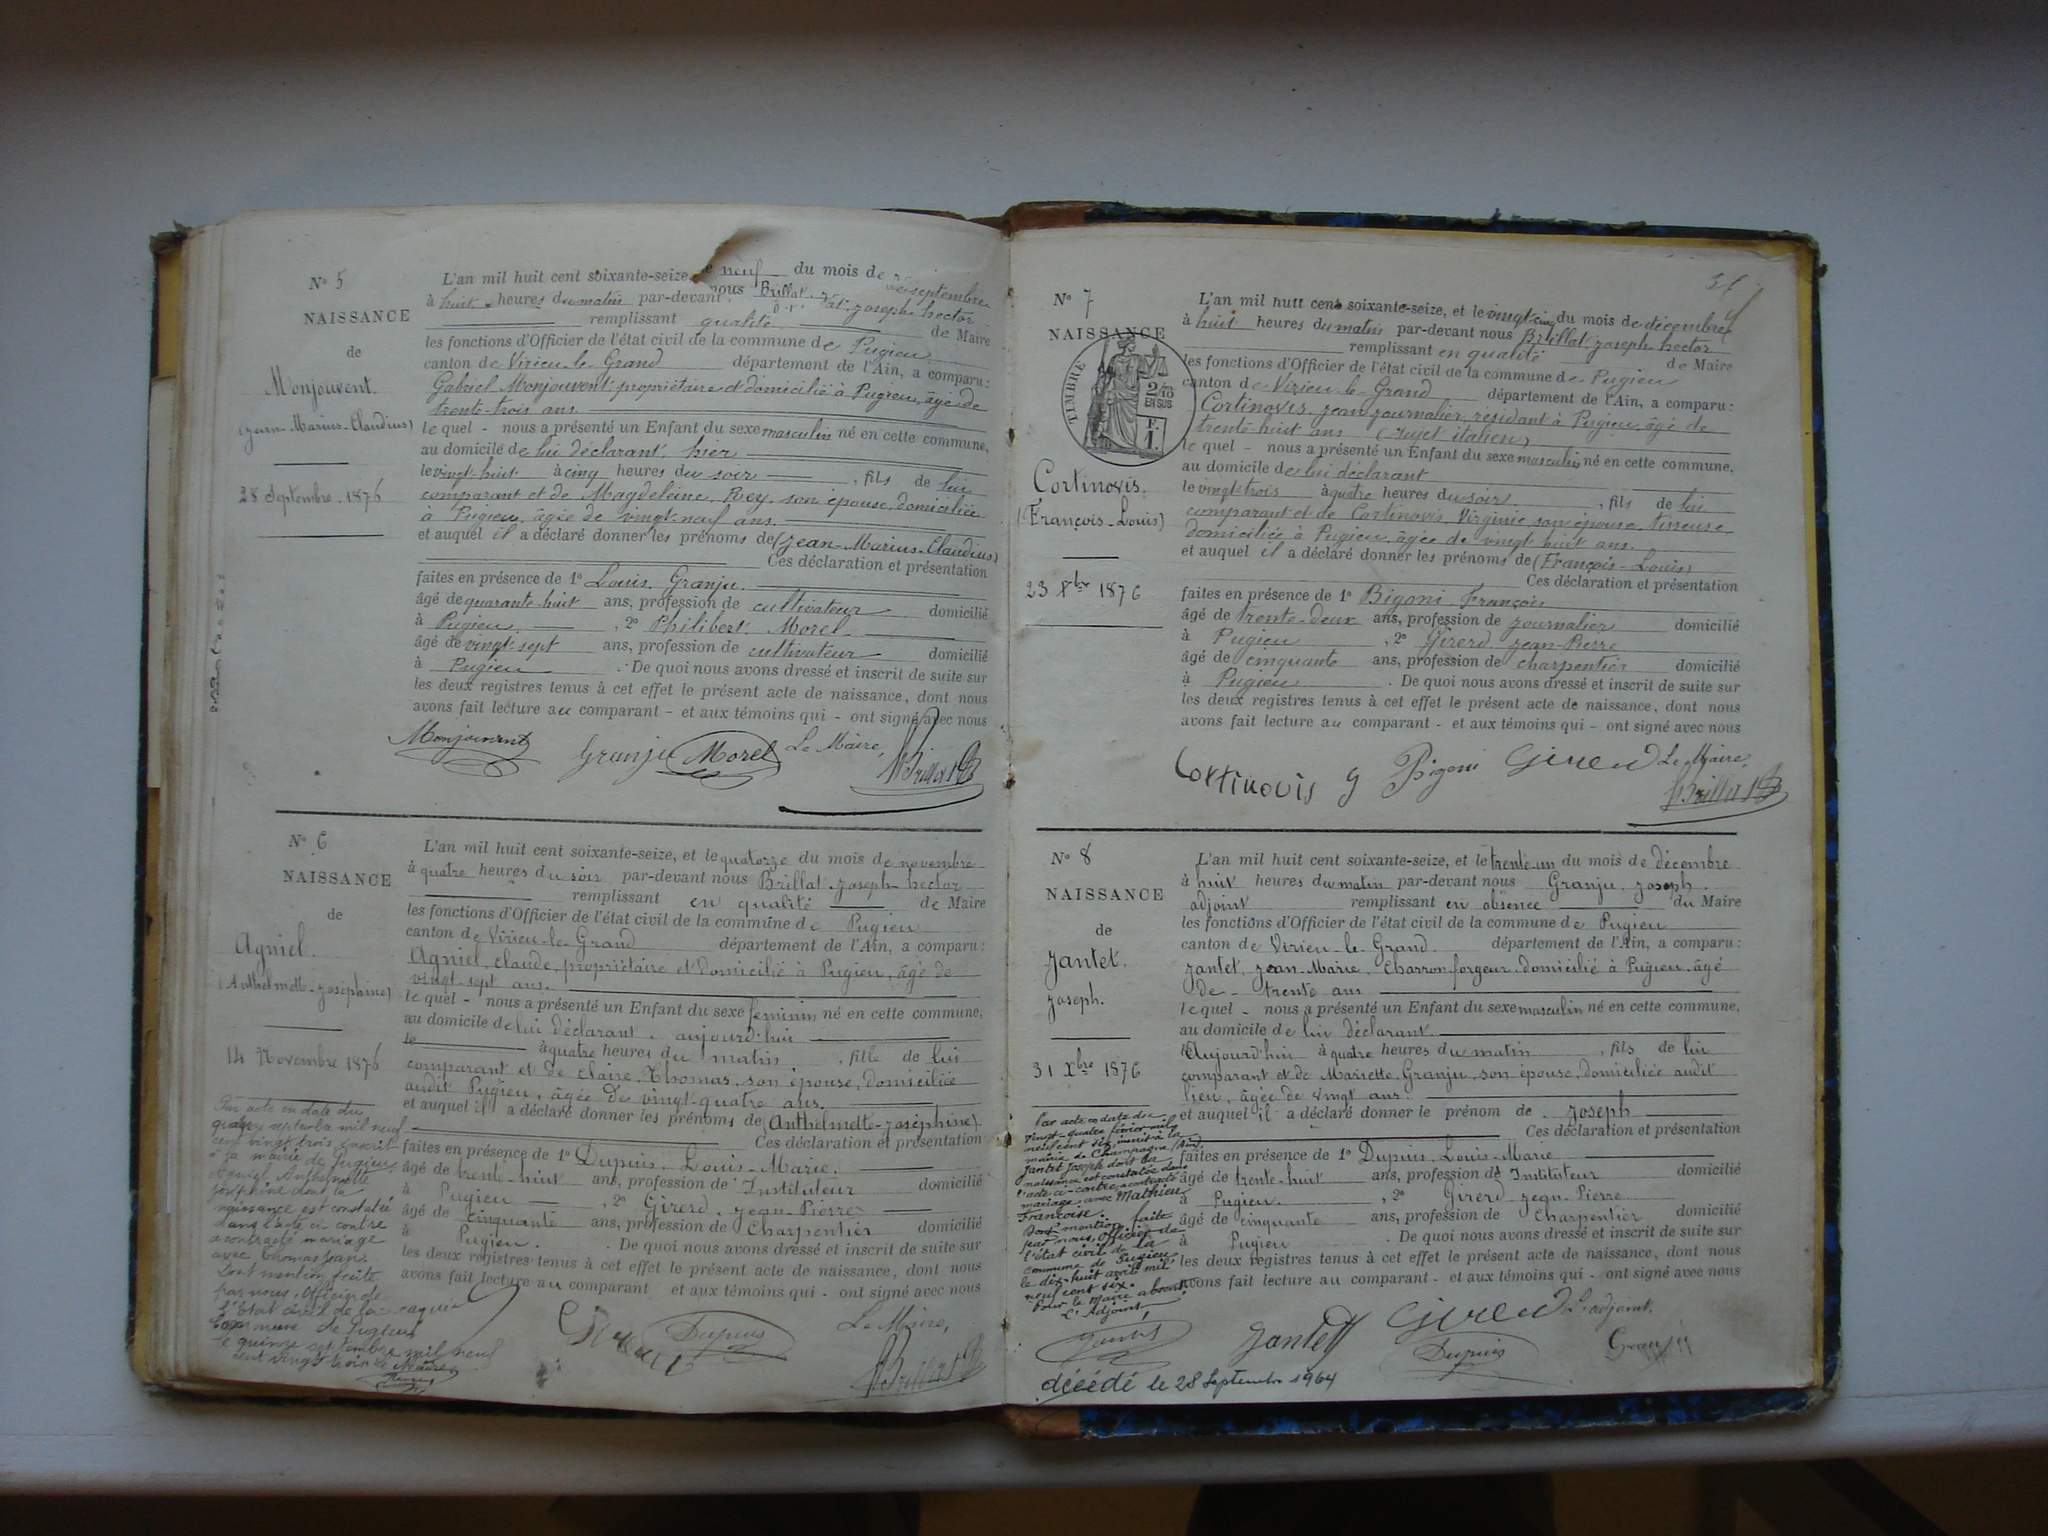 N° 5
NAISSANCE
de
Monjouvent.
(Jean-Marius-Claudius)
28 Septembre 1876
L'an mil huit cent soixante-seize neuf du mois de septembre
à huit heures du matin par-devant nous Brillat-Joseph-hector
remplissant qualité de Maire
les fonctions d'Officier de l'état civil de la commune de Pugieu
canton de Virieu-le-Grand département de l'Ain, a comparu:
Gabriel Monjouvent propriétaire et domicilié à Pugieu, âgé de
trente-trois ans
le quel - nous a présenté un Enfant du sexe masculin né en cette commune,
au domicile de lui déclarant, hier
le vingt-huit à cinq heures du soir, fils de lui
comparant et de Magdeleine Rey, son épouse, domiciliée
à Pugieu, âgée de vingt-neuf ans.
et auquel il a déclaré donner les prénoms de (Jean-Marius-Claudius)
Ces déclaration et présentation
faites en présence de 1° Louis Granju
âgé de quarante-huit ans, profession de cultivateur domicilié
à Pugieu, 2° Philibert Morel
âgé de vingt-sept ans, profession de cultivateur domicilié
à Pugieu. De quoi nous avons dressé et inscrit de suite sur
les deux registres tenus à cet effet le présent acte de naissance, dont nous
avons fait lecture au comparant - et aux témoins qui - ont signé avec nous
Monjouvent Granju Morel Le Maire,
Brillat
N° 6
NAISSANCE
de
Agniel.
(Anthelmette-Joséphine)
14 Novembre 1876
Par acte en date du
quinze septembre mil neuf
cent vingt trois inscrit
à la mairie de Pugieu
Agniel Anthelmette
Joséphine dont la
naissance est constatée
dans l'acte ci-contre
a contracté mariage
avec Thomas Jean.
Dont mention faite
par nous, Officier de
l'Etat civil de la
Commune de Pugieu
le quinze septembre mil neuf
cent vingt trois Le Maire,
L'an mil huit cent soixante-seize, et le quatorze du mois de novembre
à quatre heures du soir par-devant nous Brillat-Joseph-hector
remplissant en qualité de Maire
les fonctions d'Officier de l'état civil de la commune de Pugieu
canton de Virieu-le-Grand département de l'Ain, a comparu:
Agniel, claude, propriétaire et domicilié à Pugieu, âgé de
vingt-sept ans.
le quel - nous a présenté un Enfant du sexe feminin né en cette commune,
au domicile de lui déclarant, aujourd'hui
le à quatre heures du matin, fille de lui
comparant et de claire Thomas, son épouse, domiciliée
audit Pugieu, âgée de vingt-quatre ans.
et auquel il a déclaré donner les prénoms de (Anthelmette-Joséphine)
Ces déclaration et présentation
faites en présence de 1° Dupuis Louis-Marie.
âgé de trente-huit ans, profession de Instituteur domicilié
à Pugieu, 2° Girerd, Jean-Pierre
âgé de cinquante ans, profession de Charpentier domicilié
à Pugieu. De quoi nous avons dressé et inscrit de suite sur
les deux registres tenus à cet effet le présent acte de naissance, dont nous
avons fait lecture au comparant et aux témoins qui - ont signé avec nous
Girerd Dupuis Le Maire,
Brillat
N° 7
NAISSANCE
TIMBRE
2/10
EN SUS
F.
1.
Cortinovis.
(François-Louis)
23 Xbre 1876
L'an mil huit cent soixante-seize, et le vingt-cinq du mois de décembre
à huit heures du matin par-devant nous Brillat-Joseph-hector
remplissant en qualité de Maire
les fonctions d'Officier de l'état civil de la commune de Pugieu
canton de Virieu-le-Grand département de l'Ain, a comparu:
Cortinovis Jean journalier, résidant à Pugieu, âgé de
trente-huit ans (sujet italien)
le quel - nous a présenté un Enfant du sexe masculin né en cette commune,
au domicile de lui déclarant
le vingt-trois à quatre heures du soir, fils de lui
comparant et de Cortinovis, Virginie son épouse, tisseuse
domiciliée à Pugieu, âgée de vingt-huit ans.
et auquel il a déclaré donner les prénoms de (François-Louis)
Ces déclaration et présentation
faites en présence de 1° Bigoni François
âgé de trente-deux ans, profession de journalier domicilié
à Pugieu, 2° Girerd Jean-Pierre
âgé de cinquante ans, profession de charpentier domicilié
à Pugieu. De quoi nous avons dressé et inscrit de suite sur
les deux registres tenus à cet effet le présent acte de naissance, dont nous
avons fait lecture au comparant - et aux témoins qui - ont signé avec nous
Cortinovis g Bigoni Girerd Le Maire,
Brillat
N° 8
NAISSANCE
de
Jantet.
Joseph.
31 Xbre 1876
Par acte en date du
vingt-quatre février mil
neuf cent six inscrit à la
mairie de Champagne (Ain)
Jantet Joseph dont la
naissance est constatée dans
l'acte ci-contre a contracté
mariage avec Mathieu
Françoise.
Dont mention faite
par nous, Officier de
l'état civil de la
commune de Pugieu
le dix-huit avril mil
neuf cent six.
Pour le Maire absent
L'Adjoint,
L'an mil huit cent soixante-seize, et le trente-un du mois de décembre
à huit heures du matin par-devant nous Granju, Joseph
adjoint remplissant en absence du Maire
les fonctions d'Officier de l'état civil de la commune de Pugieu
canton de Virieu-le-Grand département de l'Ain, a comparu:
Jantet, Jean-Marie, Charron-forgeur domicilié à Pugieu, âgé
de trente ans
le quel - nous a présenté un Enfant du sexe masculin né en cette commune,
au domicile de lui déclarant
Aujourd'hui à quatre heures du matin, fils de lui
comparant et de Mariette Granju, son épouse, domiciliée audit
lieu, âgée de vingt ans.
et auquel il a déclaré donner le prénom de Joseph
Ces déclaration et présentation
faites en présence de 1° Dupuis Louis-Marie
âgé de trente-huit ans, profession de Instituteur domicilié
à Pugieu, 2° Girerd Jean-Pierre
âgé de cinquante ans, profession de Charpentier domicilié
à Pugieu. De quoi nous avons dressé et inscrit de suite sur
les deux registres tenus à cet effet le présent acte de naissance, dont nous
avons fait lecture au comparant - et aux témoins qui - ont signé avec nous
Jantet Girerd L'adjoint.
Dupuis Granju
décédé le 28 Septembre 1964